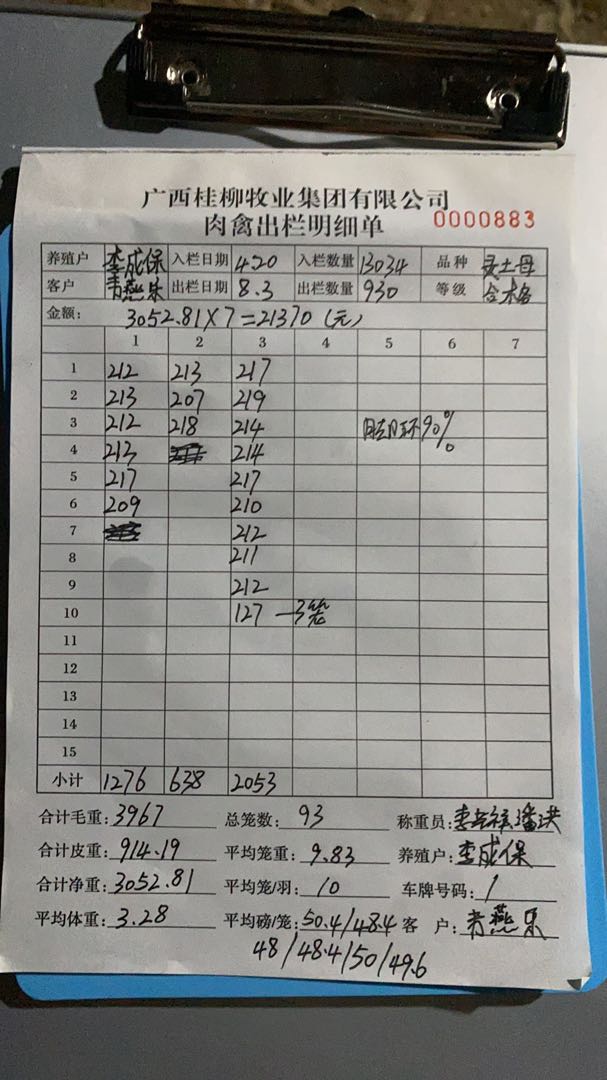 广西桂柳牧业集团有限公司
肉禽出栏明细单 0000883
养殖户 李成保 入栏日期 420 入栏数量 13034 品种 土母
客户 燕乐 出栏日期 8.3 出栏数量 930 等级 合格
金额: 3052.81×7=21370(元)
1 2 3 4 5 6 7
1 212 213 217
2 213 207 219
3 212 218 214 90%
4 213 214
5 217 217
6 209 210
7 212
8 211
9 212
10 127 —3笼
11
12
13
14
15
小计 1276 638 2053
合计毛重: 3967 总笼数: 93 称重员:
合计皮重: 914.19 平均笼重: 9.83 养殖户: 李成保
合计净重: 3052.81 平均笼/羽: 10 车牌号码: 1
平均体重: 3.28 平均磅/笼: 50.4/48.4 客 户: 燕乐
48/48.4/50/49.6